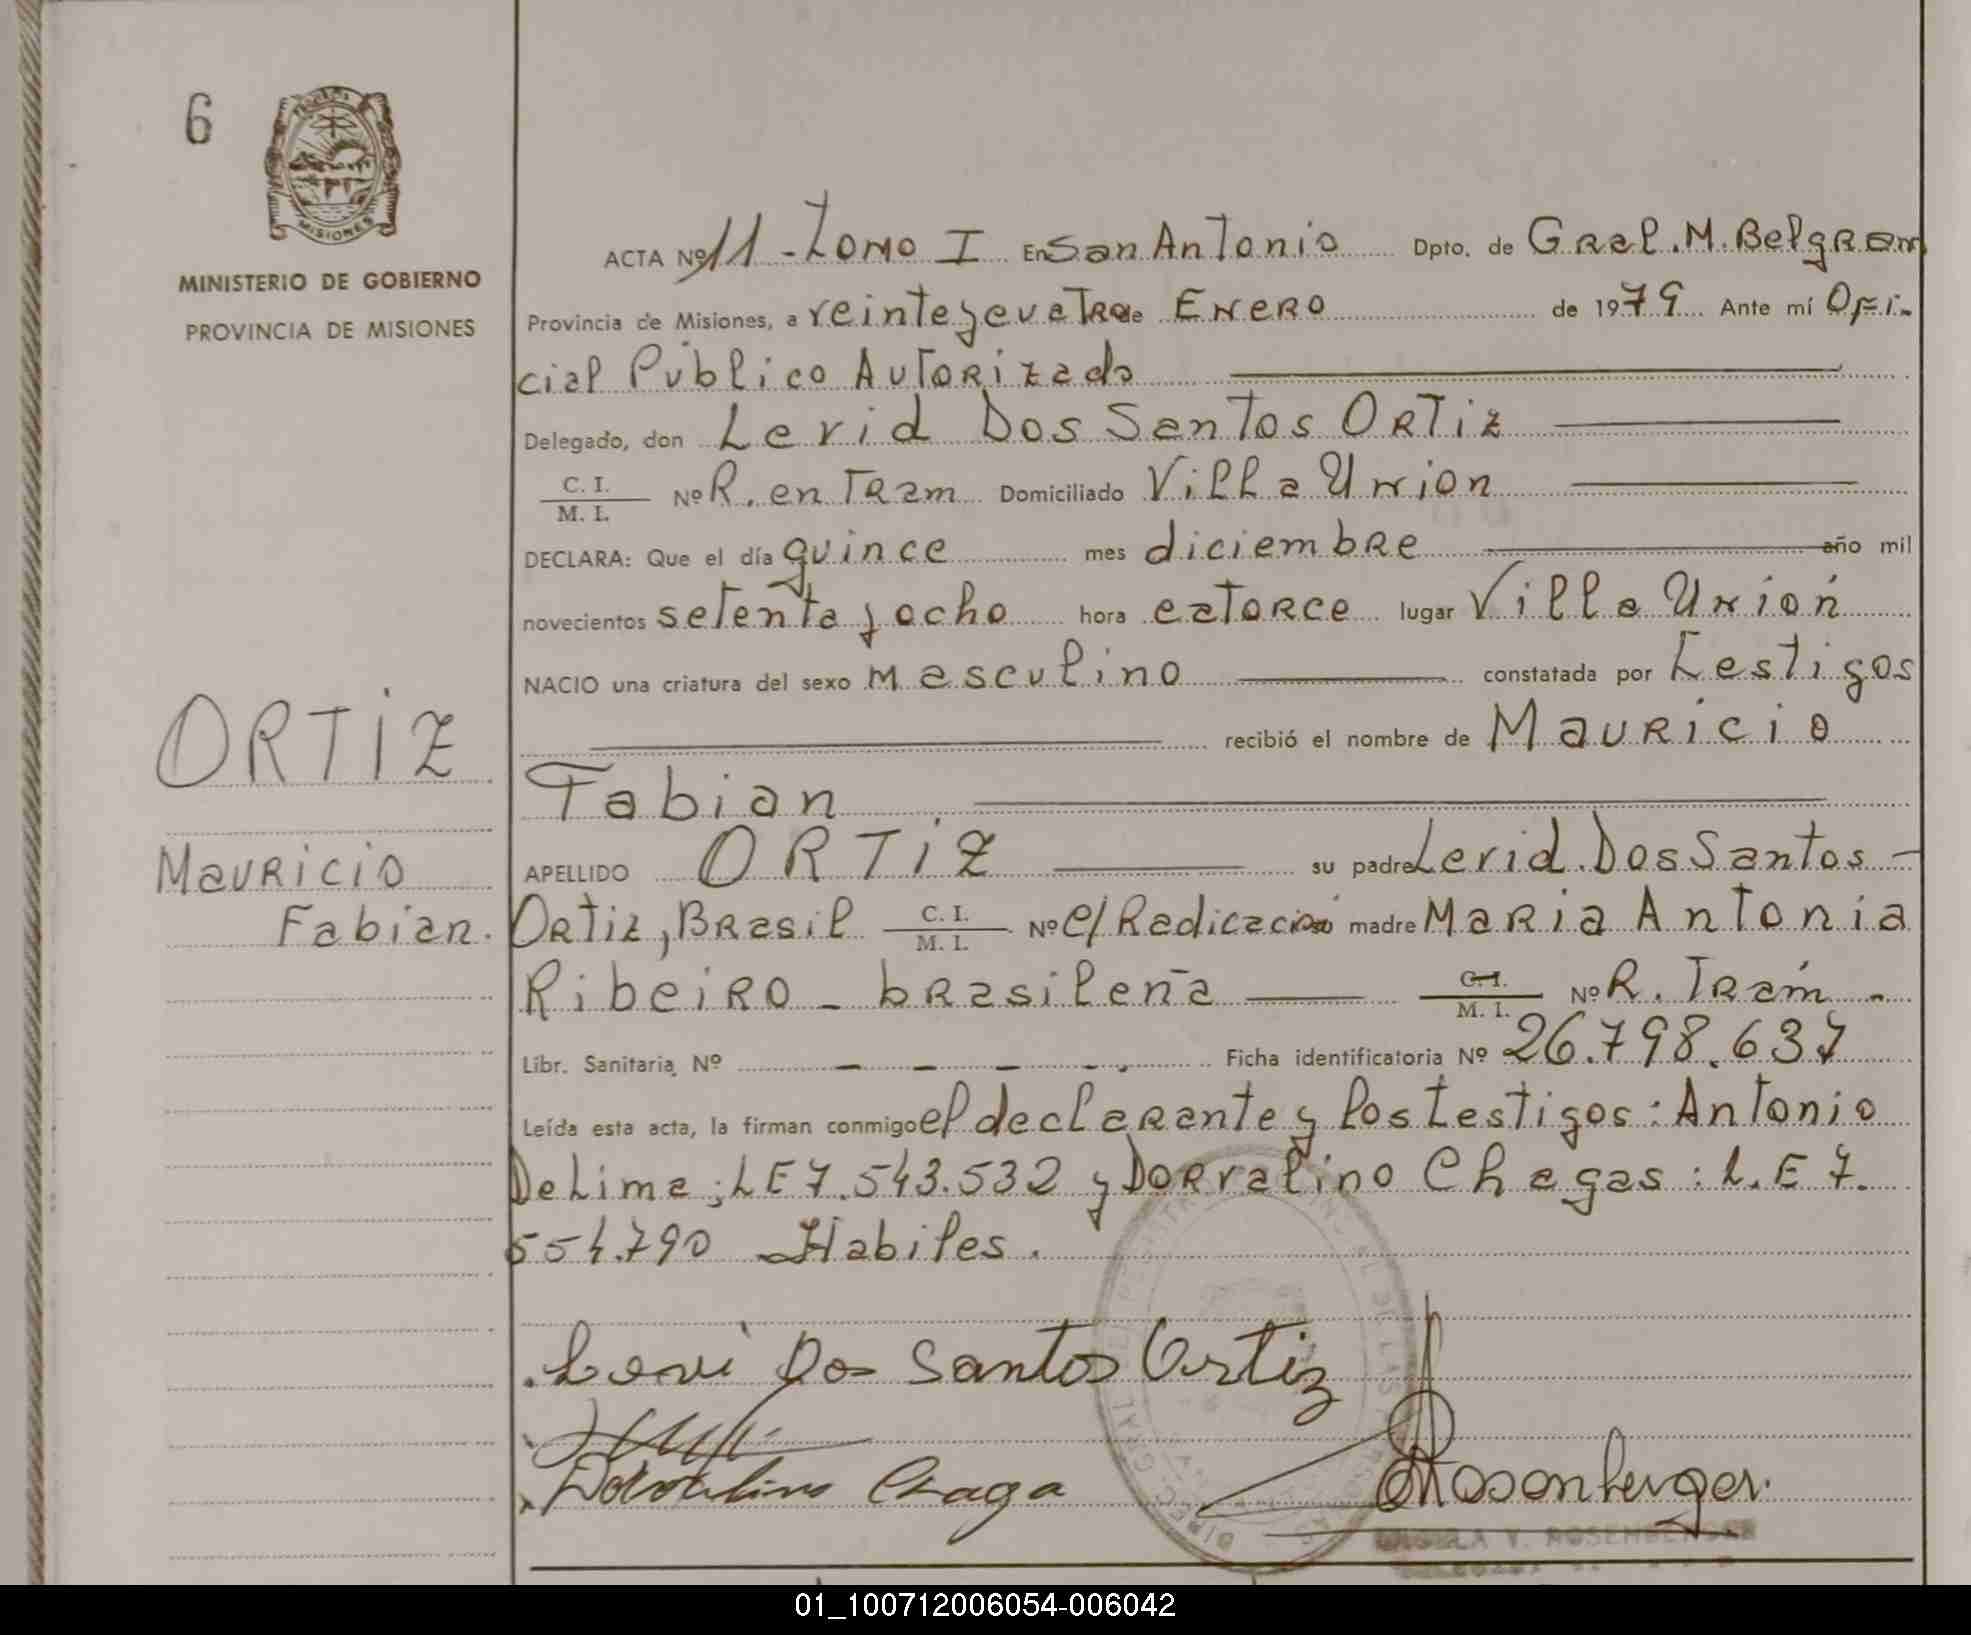 6
MISIONES
MINISTERIO DE GOBIERNO
PROVINCIA DE MISIONES
ORTIZ
Mauricio
Fabian.
ACTA Nº 11 - Tomo I En San Antonio Dpto. de Gral. M. Belgrano
Provincia de Misiones, a veinteycuatro de Enero de 1979 Ante mí Ofi-
cial Público Autorizado
Delegado, don Levid Dos Santos Ortiz
C. I. / M. I. Nº R. en Tram Domiciliado Villa Union
DECLARA: Que el día quince mes diciembre año mil
novecientos setenta y ocho hora catorce lugar Villa Unión
NACIO una criatura del sexo masculino constatada por Testigos
recibió el nombre de Mauricio
Fabian
APELLIDO ORTIZ su padre Levid Dos Santos -
Ortiz, Brasil C. I. / M. I. Nº C/ Radicación madre Maria Antonia
Ribeiro - brasileña C. I. / M. I. Nº R. Trám -
Libr. Sanitaria Nº - - - - Ficha identificatoria Nº 26.798.637
Leída esta acta, la firman conmigo el declarante y los testigos: Antonio
De Lima; LE 7.543.532 y Dorvalino Chagas: L.E 7.
554.790 Habiles.
Levi Dos Santos Ortiz
Dorvalino Chaga
Rosenberger.
V. ROSENBERGER
01_100712006054-006042